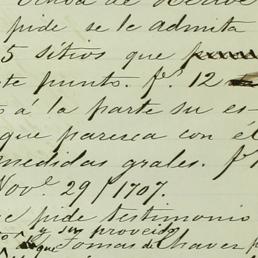 Ochoa de
pide se le admita
5 sitios que
te punto. f.º 12
á la parte su es-
que paresca con él
medidas grales. f
Nov.e 29/1707.
e pide testimonio
y su proveido
que Tomas de Chaves p